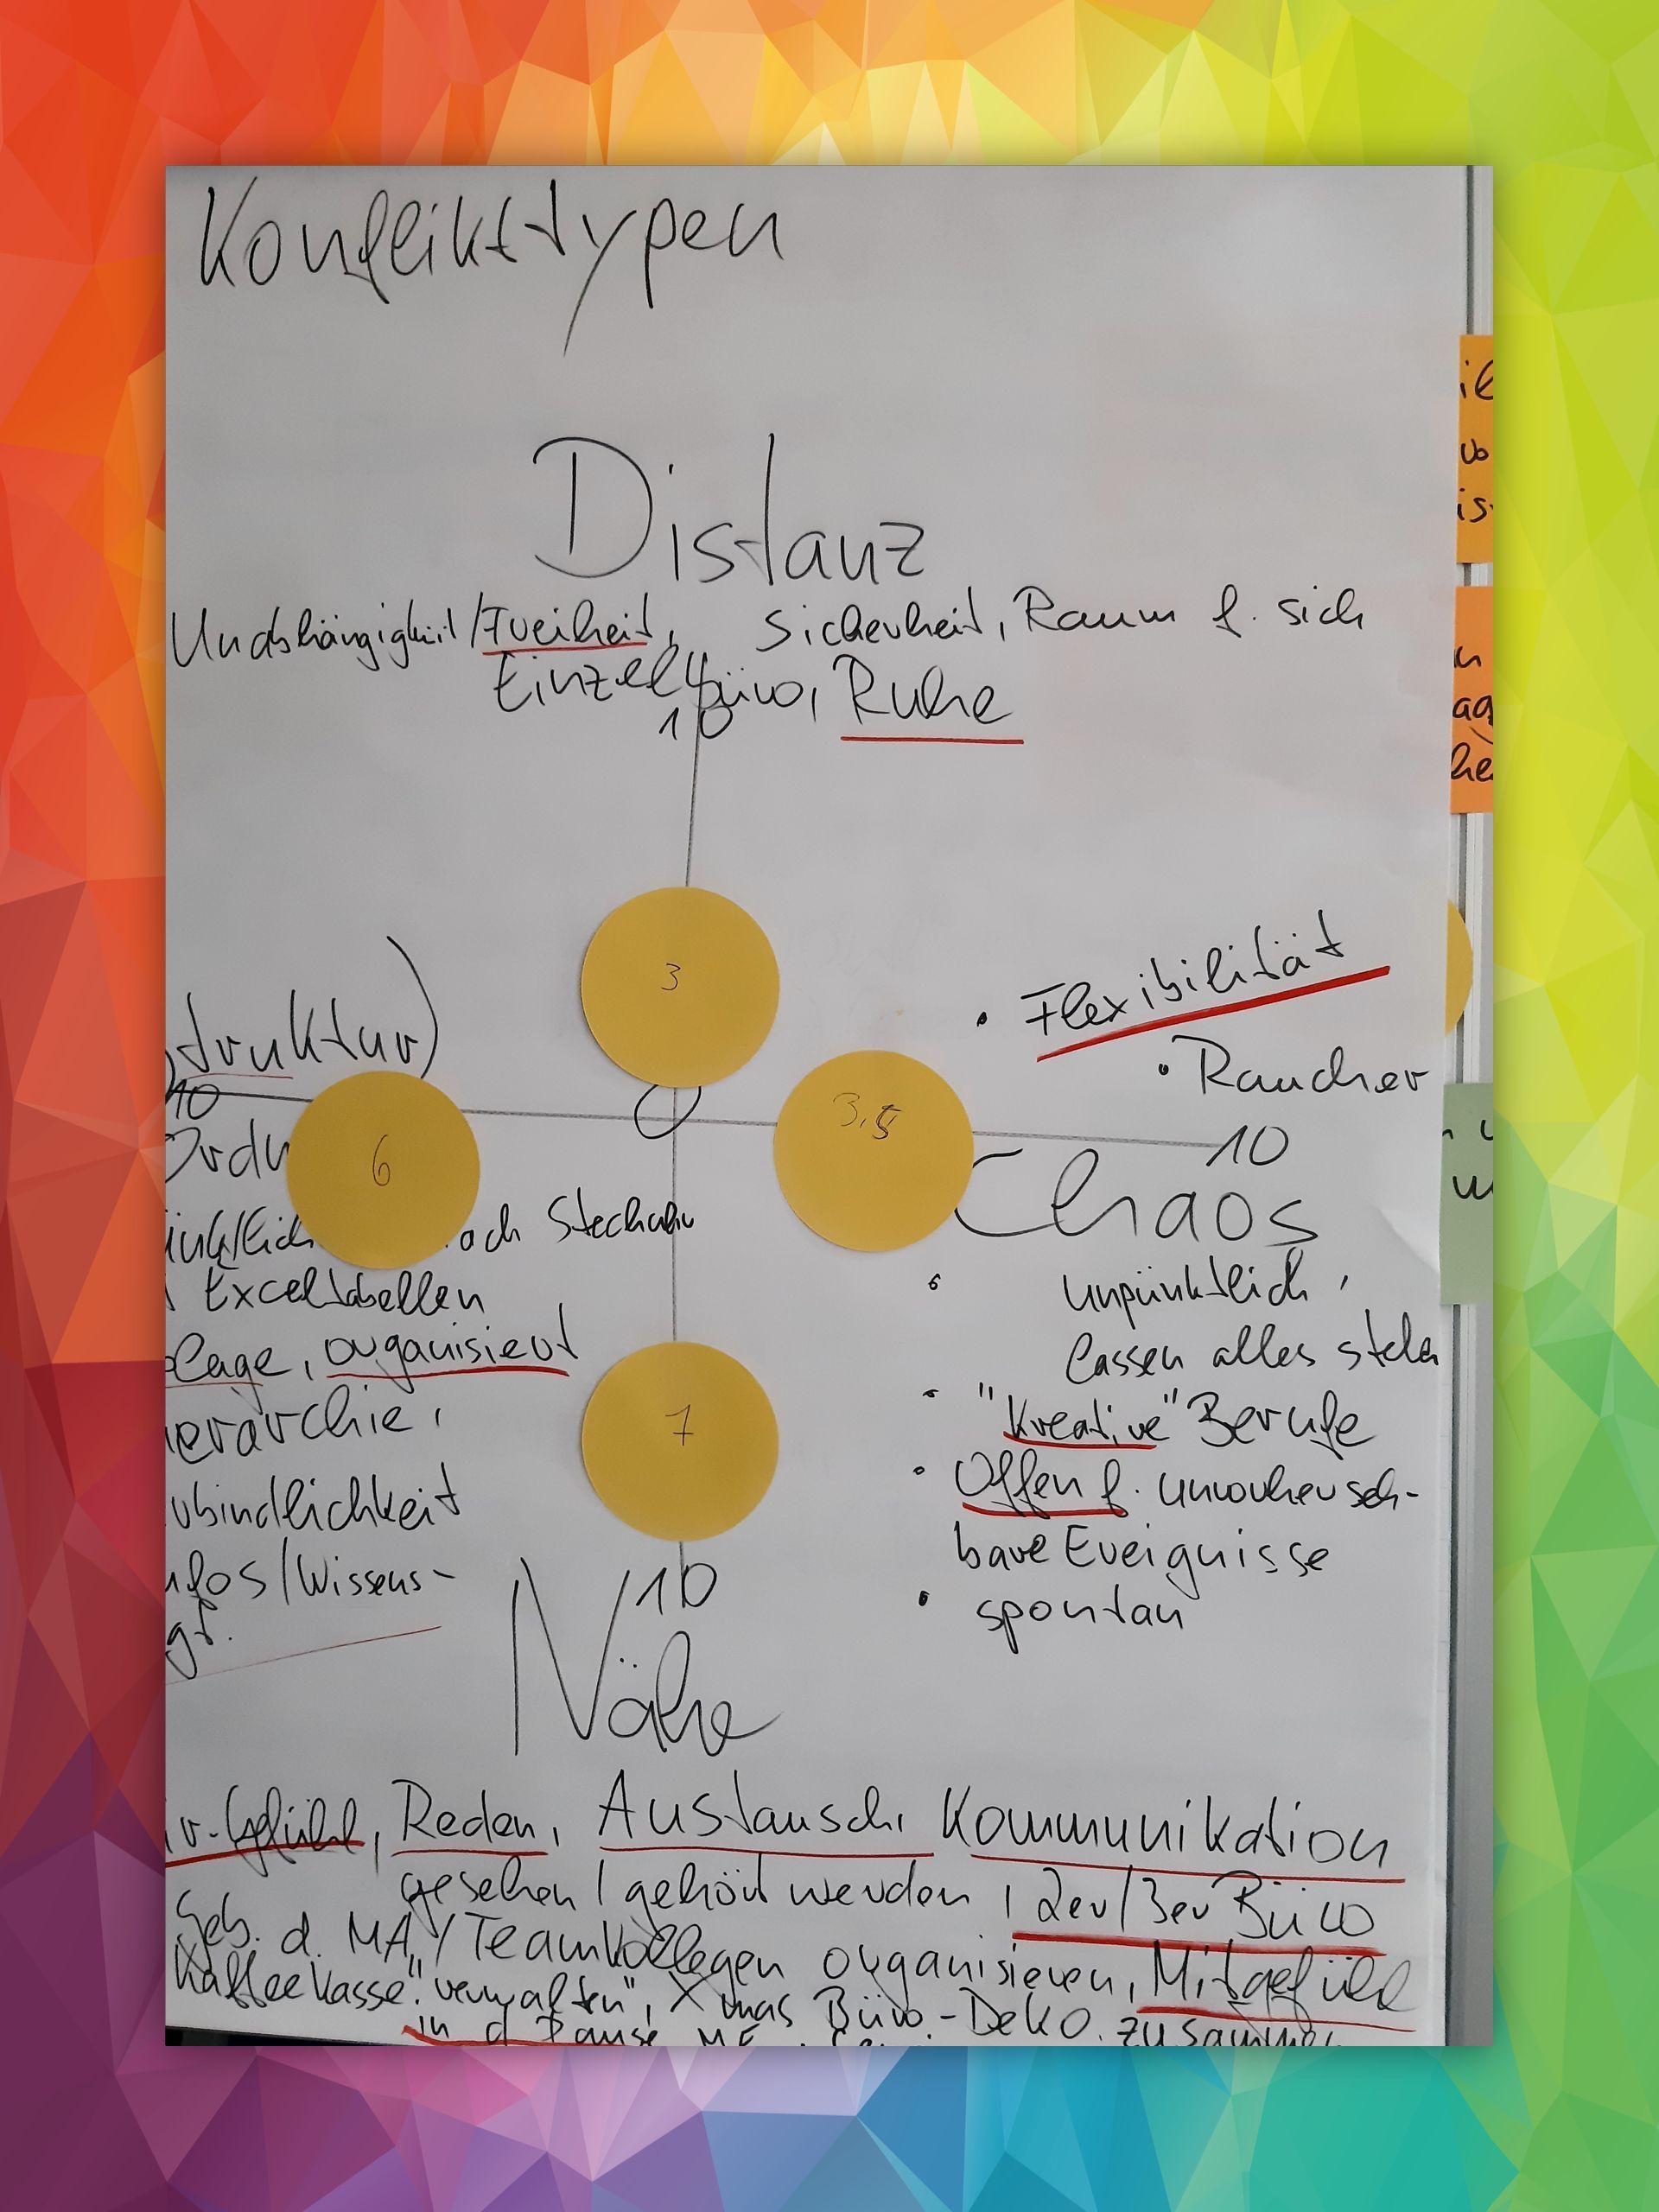 Konflikttypen
Distanz
Unabhängigkeit/Freiheit, Sicherheit, Raum f. sich
Einzelbüro, Ruhe
10
3
• Flexibilität
• Raucher
truktur)
10
0
3,5
10
Ordn
6
Chaos
ünktlich och Stechuhr
Exceltabellen
lage, organisiert
ierarchie,
rbindlichkeit
nfos/Wissens-
gt.
• unpünktlich,
lassen alles stehn
• "Kreative" Berufe
• Offen f. unvorhersch-
bare Ereignisse
• spontan
7
10
Nähe
ir-Gefühl, Reden, Austausch, Kommunikation
gesehen/gehört werden, 2er/3er Büro
Geb. d. MA/Teamkollegen organisieren, Mitgefühl
Kaffeekasse "verwalten", Xmas Büro-Deko, zusammen
in d. Pause